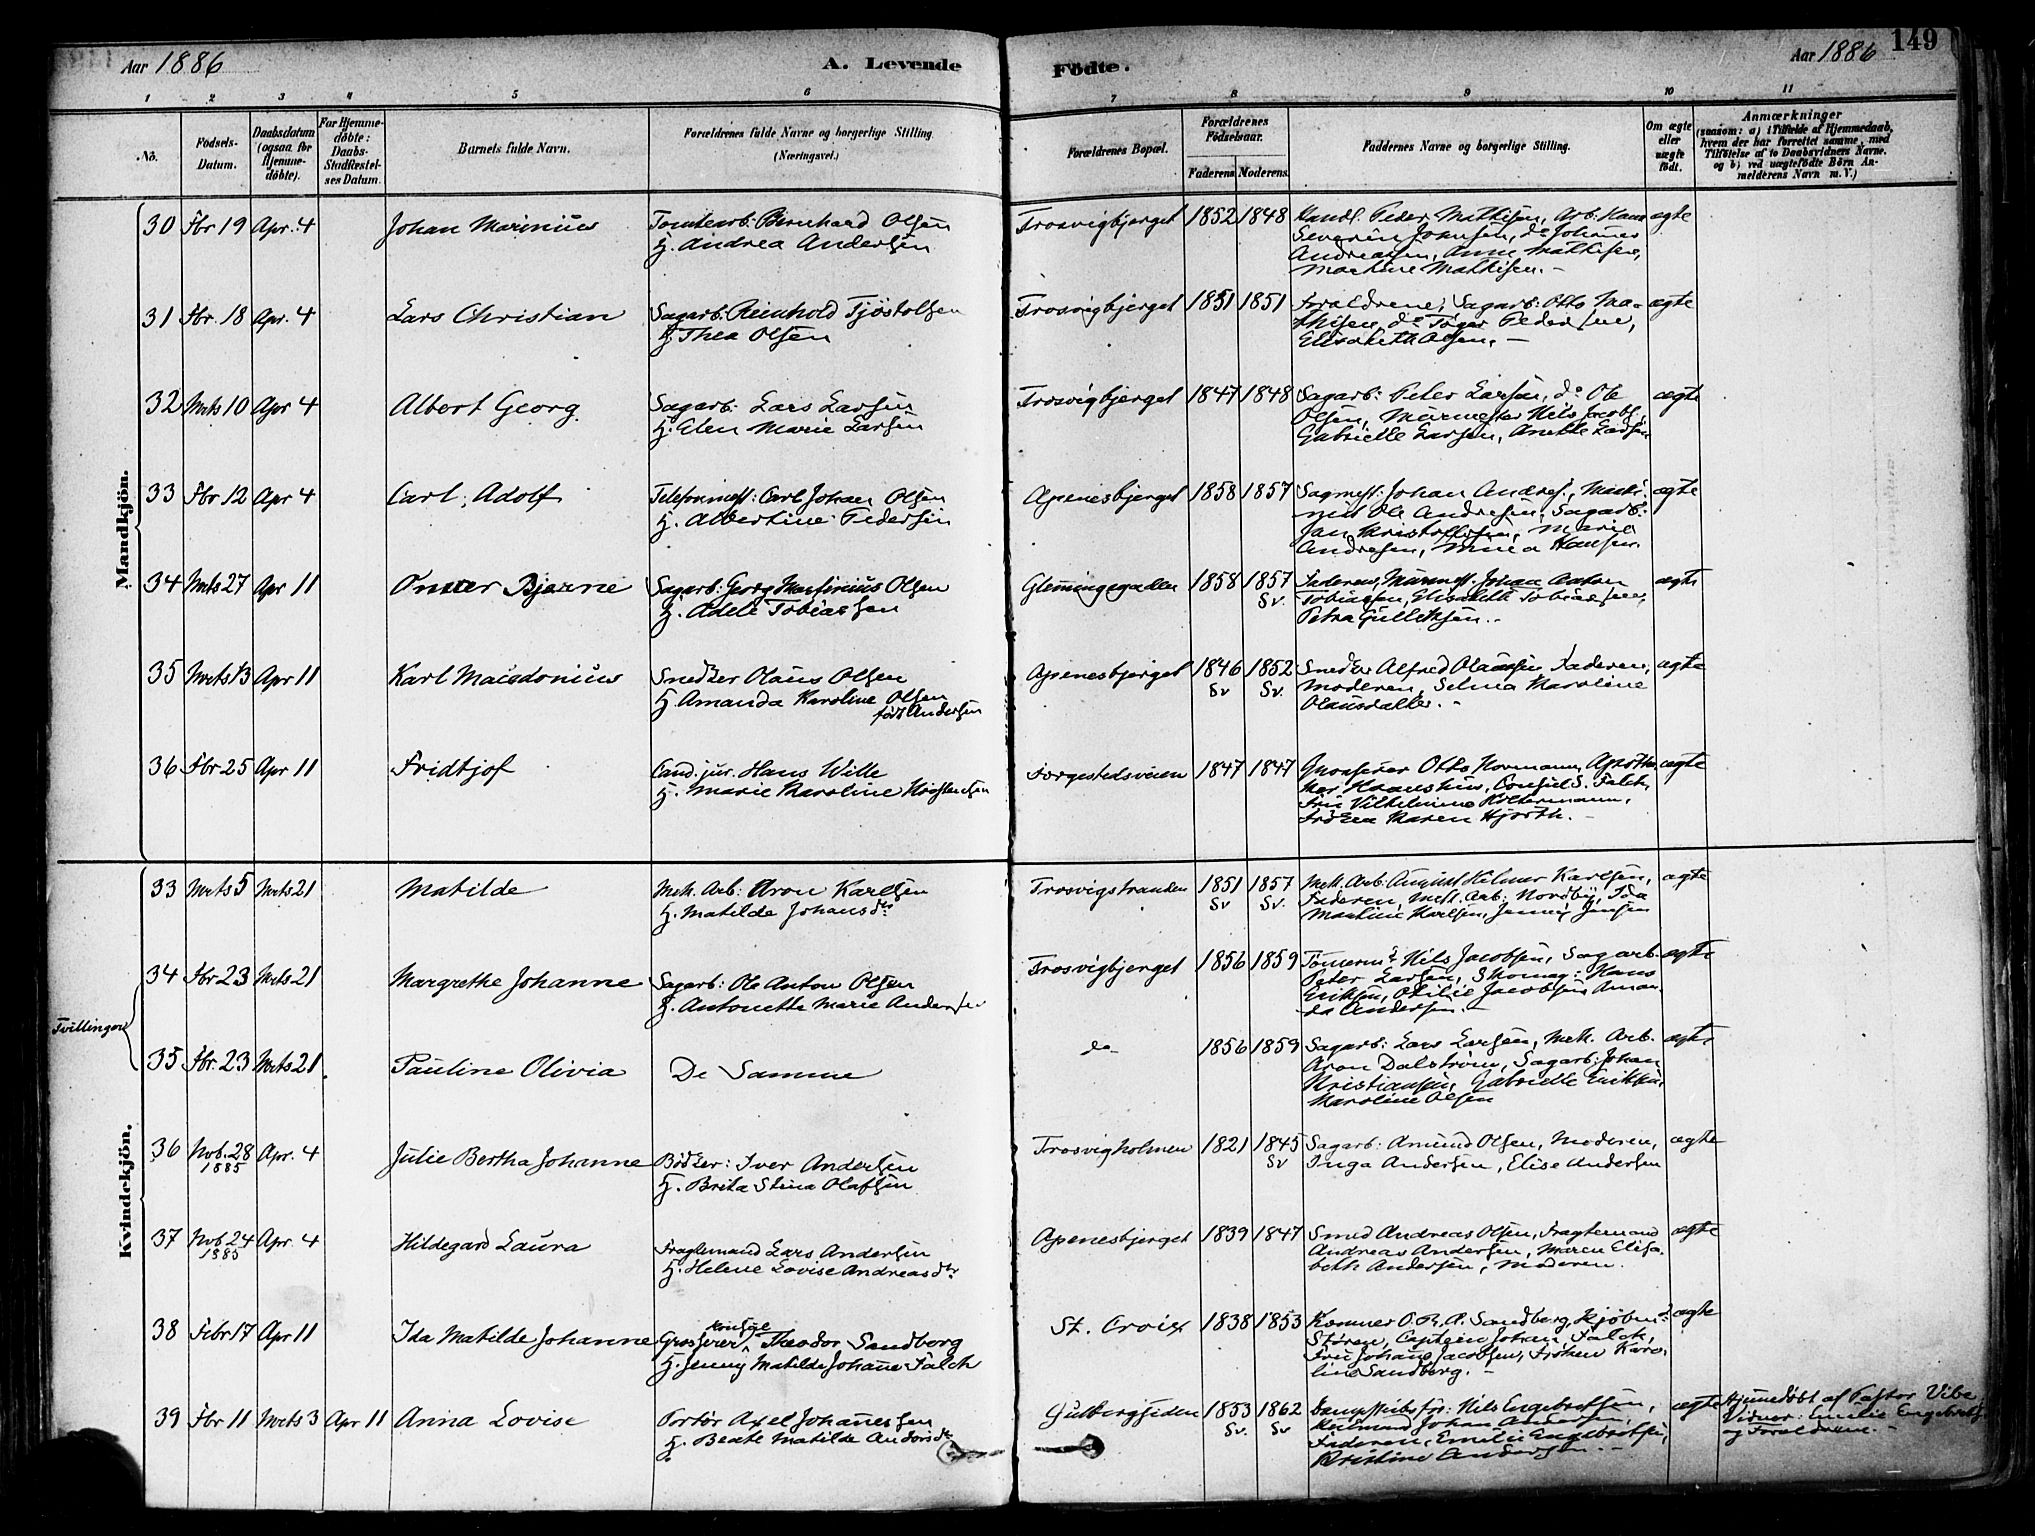 149
Aar 1886
A. Levende
Födte.
Aar 1886
1 2 3 4 5 6 7 8 9 10 11
No.
Födsels-Datum.
Daabsdatum (ogsaa for Hjemme-döbte).
For Hjemme-döbte: Daabs-Stadfæstel-ses Datum.
Barnets fulde Navn.
Forældrenes fulde Navne og borgerlige Stilling. (Næringsvei.)
Forældrenes Bopæl.
Forældrenes Födselsaar.
Faderens Moderens
Faddernes Navne og borgerlige Stilling.
Om ægte eller uægte födt.
Anmærkninger
(saasom: a) i Tilfælde af Hjemmedaab, hvem der har forrettet samme, med Tilföielse af to Daabsvidners Navne, og b) ved uægtefödte Börn An-melderens Navn m. V.)
Mandkjön.
30 Fbr 19 Apr. 4 Johan Marinius Tomtearb: Bernhard Olsen
H. Andrea Andersen
Trosvigbjerget 1852 1848 Handl. Peder Mathisen, Arb. Hans
Severin Johnsen, do Johannes
Andreasen, Anne Mathisen,
Martine Mathisen.-
ægte
31 Fbr. 18 Apr. 4 Lars Christian Sagarb: Reinhold Tjöstolfsen
H. Thea Olsen
Trosvigbjerget 1851 1851 Forældrene, Sagarb: Otto Ma-
thisen, do Peder
Elisabeth Olsen.-
ægte
32 Mrts 10 Apr 4 Albert Georg Sagarb: Lars Larsen
H. Elen Marie Larsen
Trosvigbjerget 1847 1848 Sagarb: Peter Larsen, do Ole
Olsen, Murmester Nils Jacobs.
Gabrielle Larsen, Anette Larsen
ægte
33 Fbr 12 Apr 4 Carl Adolf Carl Johan Olsen
H. Albertine Pedersen
Apenesbjerget 1858 1857 Sagmest: Johan Andres., Maski-
nist Ole Andresen, Sagarb:
Jan Kristoffersen, Marie
Andresen, Mina Hansen.
ægte
34 Mrts 27 Apr 11 Bjarne Sagarb: Georg Martinius Olsen
H. Adele Tobiassen
Glemmingegaden 1858 1857 Sv. Faderen, Murmest. Johan Anton
Tobiassen, Elisabeth Tobiassen,
Petra Gulliksen.-
ægte
35 Mrts 13 Apr 11 Karl Macedonius Snedker Olaus Olsen
H. Amanda Karoline Olsen
født Andersen
Apenesbjerget 1846 Sv 1852 Sv. Snedker Alfred Olaussen, Faderen,
Moderen, Selma Karoline
Olausdatter.-
ægte
36 Fbr 25 Apr 11 Fridtjof Cand. jur. Hans Wille
H. Marie Karoline
Torgestedsveien 1847 1847 Grosserer Otto Normann, Apothe-
ker Consul S. Falck,
Fru Vilhelmine
Frøken Maren Hjorth.-
ægte
Kvindekjön.
33 Mrts 5 Mrts 21 Matilde Mek. Arb: Aron Karlsen
H. Matilde Johansdr
Trosvigstranden 1851 Sv 1857 Sv. Mek. Arb: August Hilmer Karlsen,
Faderen, Mek. Arb: Nordby, Ida
Martine Karlsen, Jenny Jensen
ægte
Tvillinger
34 Fbr 23 Mrts 21 Margrethe Johanne Sagarb: Ole Anton Olsen
H. Antonette Marie Andersen
Trosvigbjerget 1856 1859 Nils Jacobsen, Sagarb.
Peter Larsen, Skomag: Hans
Eriksen, Otilie Jacobsen, Aman-
da Andersen.-
ægte
35 Fbr. 23 Mrts 21 Pauline Olivia De Samme
do 1856 1859 Sagarb: Lars Larsen, Mek. Arb.
Aron Dalström, Sagarb: Johan
Kristiansen, Gabrielle Eriksen,
Karoline Olsen
ægte
36 Nvb. 28 1885 Apr. 4 Julie Bertha Johanne Bödker: Iver Andersen
H. Brita Stina Olafsen
Trosvigholmen 1821 1845 Sv Sagarb: Amund Olsen, Moderen,
Inga Andersen, Elise Andersen
ægte
37 Nvb. 24 1885 Apr. 4 Hildegard Laura Fragtemand Lars Andersen
H. Helene Lovise Andreasdtr
Apenesbjerget 1839 1847 Smed Andreas Olsen, Fragtemand
Andreas Andersen, Maren Elisa-
beth Andersen, Moderen.
ægte
38 Febr 17 Apr 11 Ida Matilde Johanne Grosserer, Konsul Theodor Sandberg
H. Jenny Matilde Johanne Falck
St. Croix 1838 1853 O. R. A. Sandberg, Kjøbm.
Støren, Captein Johan Falck,
Fru Johane Jacobsen, Frøken Karo-
line Sandberg.-
ægte
39 Fbr 11 Mrts 3 Apr 11 Anna Lovise Portör Axel Johannessen
H. Beate Matilde Andersdr
Gulbergsiden 1853 Sv. 1862 Sv Dampskibsfør: Nils Engebretsen,
Johan Andersen,
Faderen, Emilie Engebretsen,
Kristine Andersen.-
ægte Hjemmedöbt af Pastor Vibe
Vidner: Emilie Engebrets.
og Forældrene.-